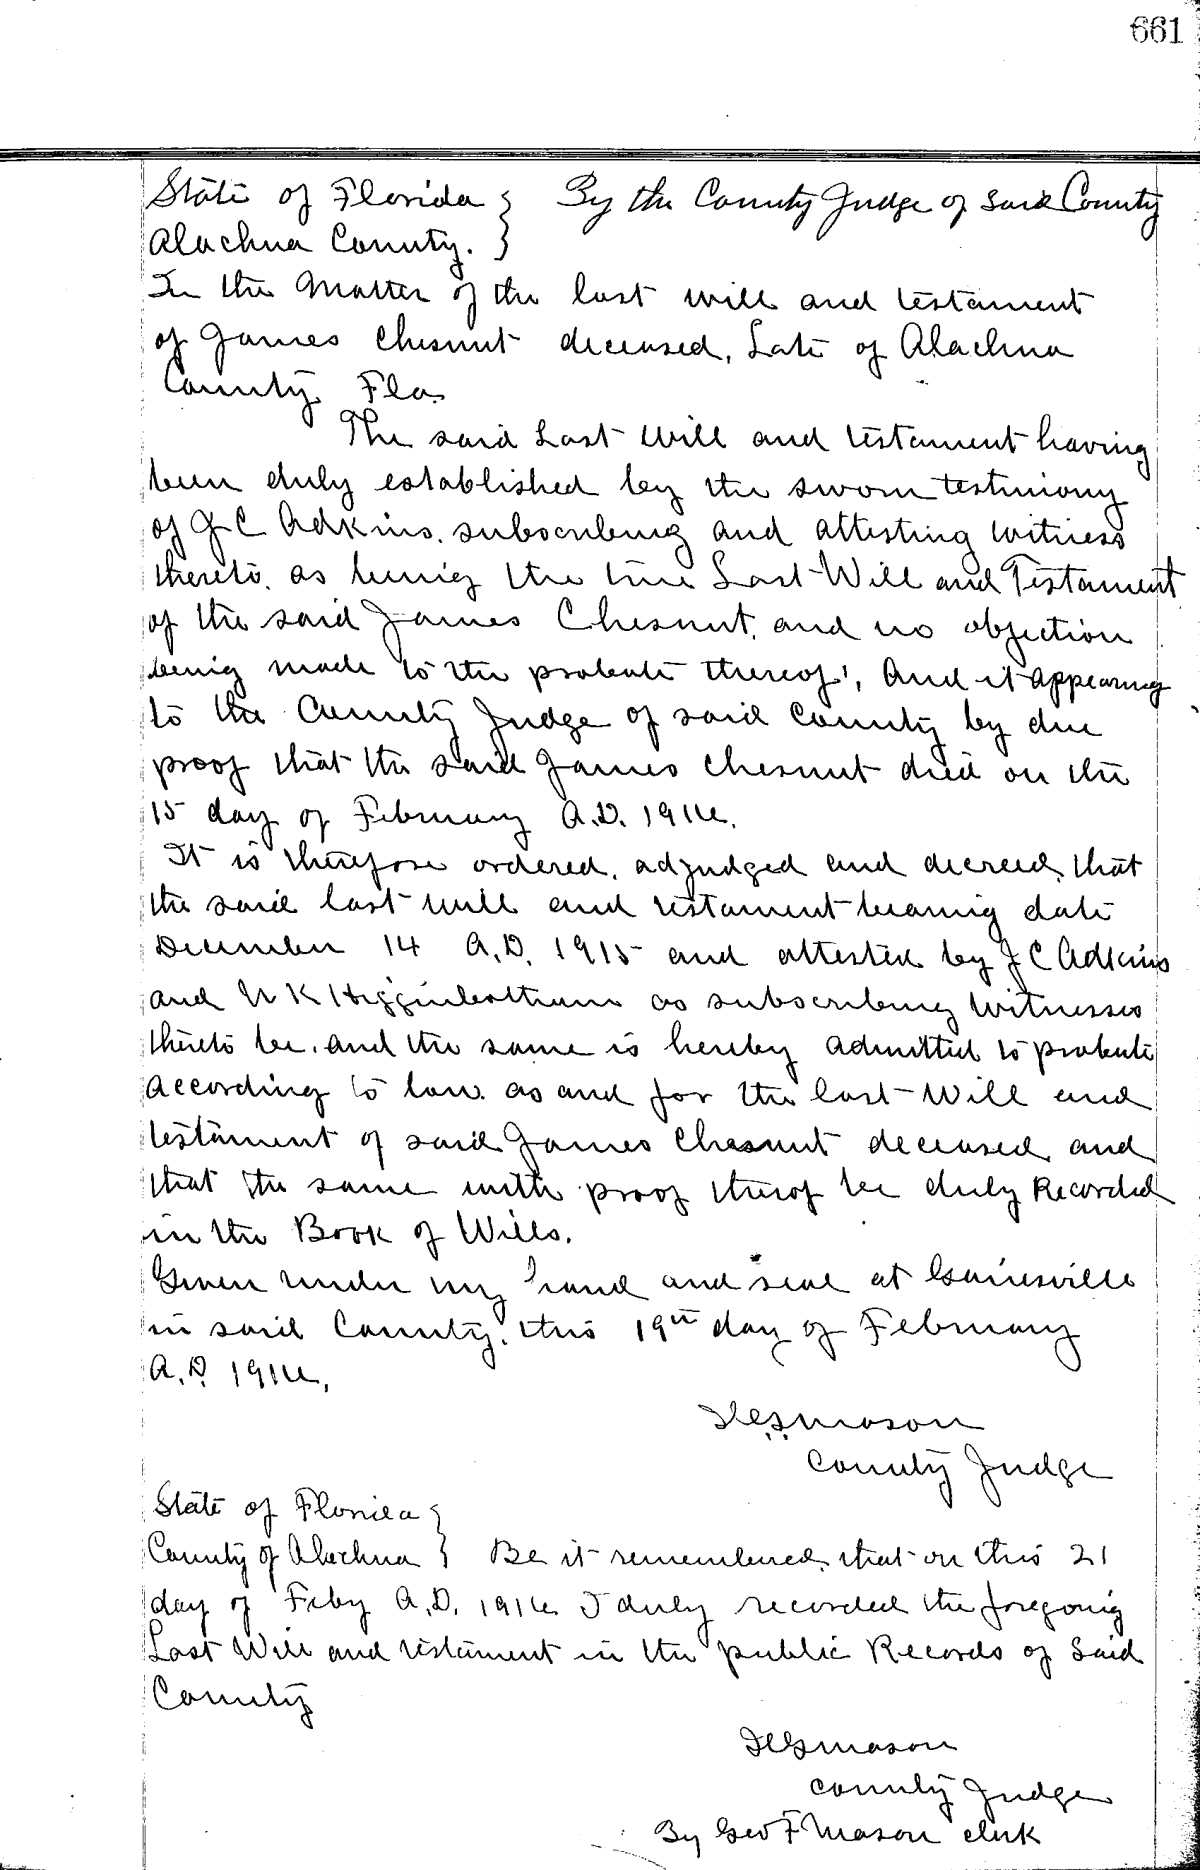 661
State of Florida } By the County Judge of said County
Alachua County. }
In the Matter of the last will and testament
of James Chesnut deceased, Late of Alachua
County Fla.
The said Last Will and testament having
been duly established by the sworn testimony
of J C Adkins, subscribing and attesting witness
thereto, as being the true Last Will and Testament
of the said James Chesnut, and no objection
being made to the probate thereof, And it appearing
to the County Judge of said County by due
proof that the said James Chesnut died on the
15 day of February A.D. 1916.
It is therefore ordered, adjudged and decreed, that
the said last will and testament bearing date
December 14 A.D. 1915 and attested by J C Adkins
and W K Higginbotham as subscribing witnesses
thereto be, and the same is hereby admitted to probate
according to law, as and for the last Will and
testament of said James Chesnut deceased, and
that the same with proof therof be duly Recorded
in the Book of Wills.
Given under my hand and seal at Gainesville
in said County, this 19th day of February
A.D. 1916.
Mason
County Judge
State of Florida }
County of Alachua } Be it remembered, that on this 21
day of Feby A.D. 1916 I duly recorded the foregoing
Last Will and testament in the public Records of Said
County
Mason
County Judge
By Geo F Mason clerk